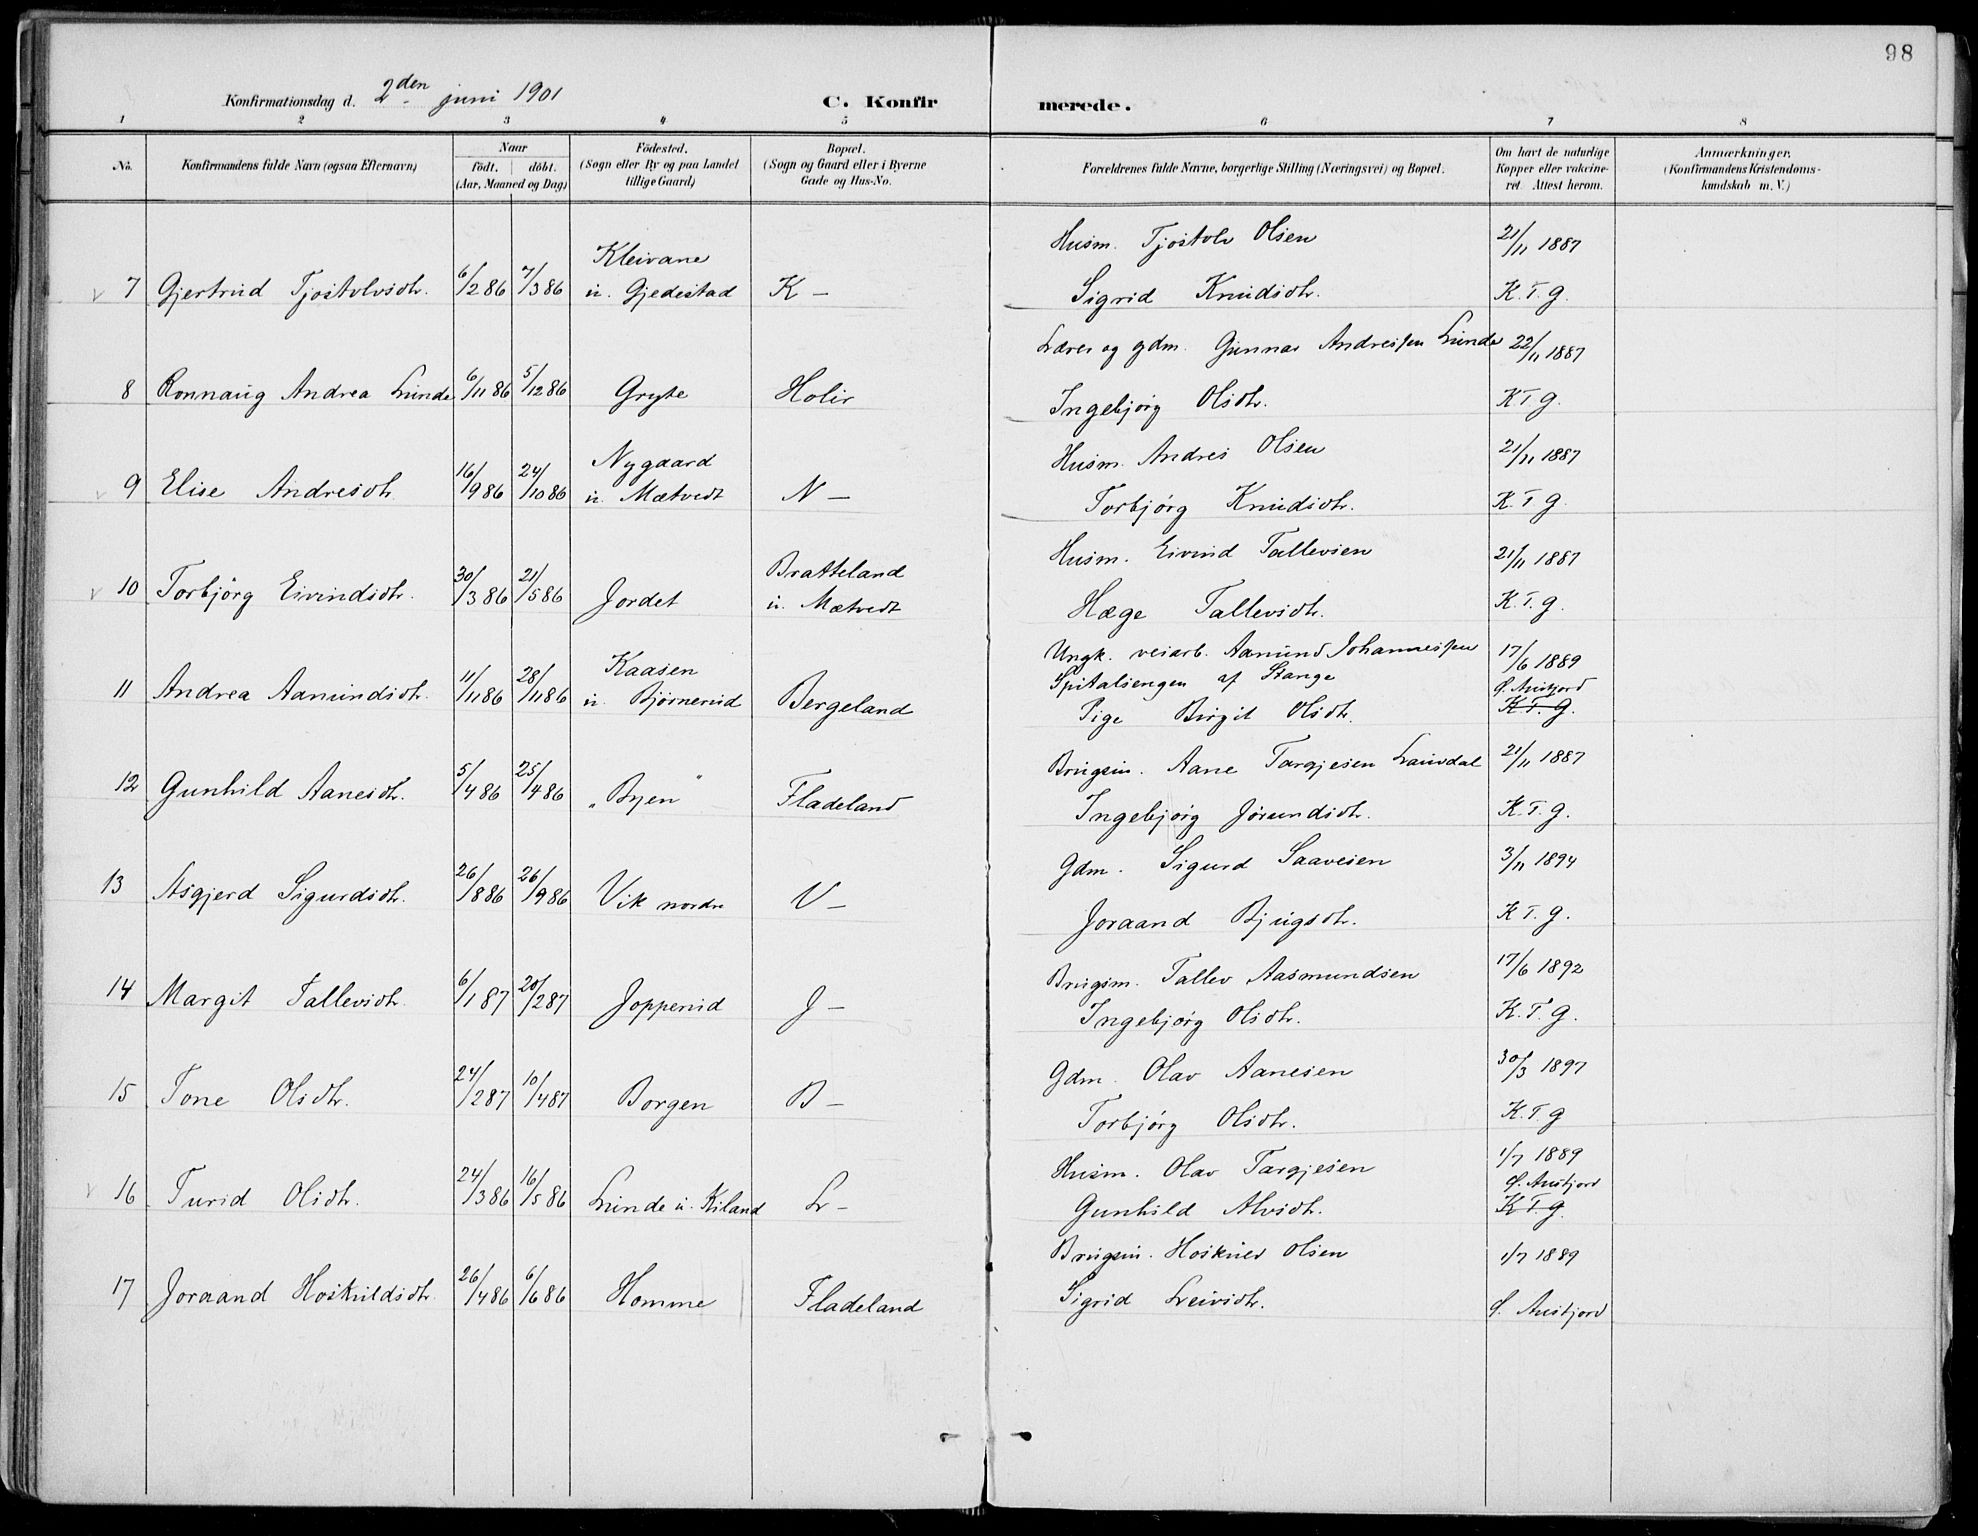 98
Konfirmationsdag d. 2den juni 1901 C. Konfirmerede.
1 2 3 4 5 6 7 8
No. Konfirmandens fulde Navn (ogsaa Efternavn) Naar födt. döbt. (Aar, Maaned og Dag) Födested. (Sogn eller By og paa Landet tillige Gaard) Bopæl. (Sogn og Gaard eller i Byerne Gade og Hus-No. Forældrenes fulde Navne, borgerlige Stilling (Næringsvei) og Bopæl. Om havt de naturlige Kopper eller vakcineret. Attest herom. Anmærkninger. (Konfirmandens Kristendomskundskab m. V.)
Kleivane Husm. Tjostolv Olsen 21/11 1887
7 Gjertrud Tjostolvsdtr. 6/2 86 7/3 86 u. Gjedestad K — Sigrid Knudsdtr. K. T. G.
Lærer og gdm. Gunnar Andresen Lunde 22/11 1887
8 Ronnaug Andrea Lunde 6/11 86 5/12 86 Gryte Holir Ingebjørg Olsdtr. K T G.
Nygaard Husm. Andres Olsen 21/11 1887
9 Elise Andresdtr. 16/9 86 24/10 86 u. Mætvedt N — Torbjørg Knudsdtr. K. T G.
Bratteland Husm. Eivind Tallevsen 21/11 1887
10 Torbjörg Eivindsdtr. 30/3 86 21/5 86 Jordet u. Mætvedt Hæge Tallevsdtr. K. T. G.
Kaasen Ungk. veiarb. Aamund Johannessen 17/6 1889
Spitalsengen af Stange Ø. Ausfjord
11 Andrea Aamundsdtr. 11/11 86 28/11 86 u. Bjørnerud Bergeland Pige Birgit Olsdtr. K T. G.
Brugsm. Aane Targjesen Lauvdal 21/11 1887
12 Gunhild Aanesdtr. 5/4 86 25/4 86 "Byen" Fladeland Ingebjørg Jørundsdtr. K. T. G.
Gdm. Sigurd Saavesen 3/11 1894
13 Asgjerd Sigurdsdtr. 26/8 86 26/9 86 Vik nordre V — Joraand Bjugsdtr. K T. G.
Brugsm. Tallev Aasmundsen 17/6 1892
14 Margit Tallevsdtr. 6/1 87 20/2 87 Jopperud J — Ingebjørg Olsdtr. K. T. G.
Gdm. Olav Aanesen 30/3 1897
15 Tone Olsdtr. 24/2 87 10/4 87 Borgen B — Torbjørg Olsdtr. K. T. G
Husm. Olav Targjesen 1/7 1889
Ø. Ausfjord
16 Turid Olsdtr. 24/3 86 16/5 86 Lunde u. Kiland L — Gunhild Alvsdtr. K T. G.
Brugsm. Høskuld Olsen 1/7 1889
17 Joraand Høskuldsdtr. 26/4 86 6/6 86 Homme Fladeland Sigrid Leivsdtr. Ø. Ausfjord